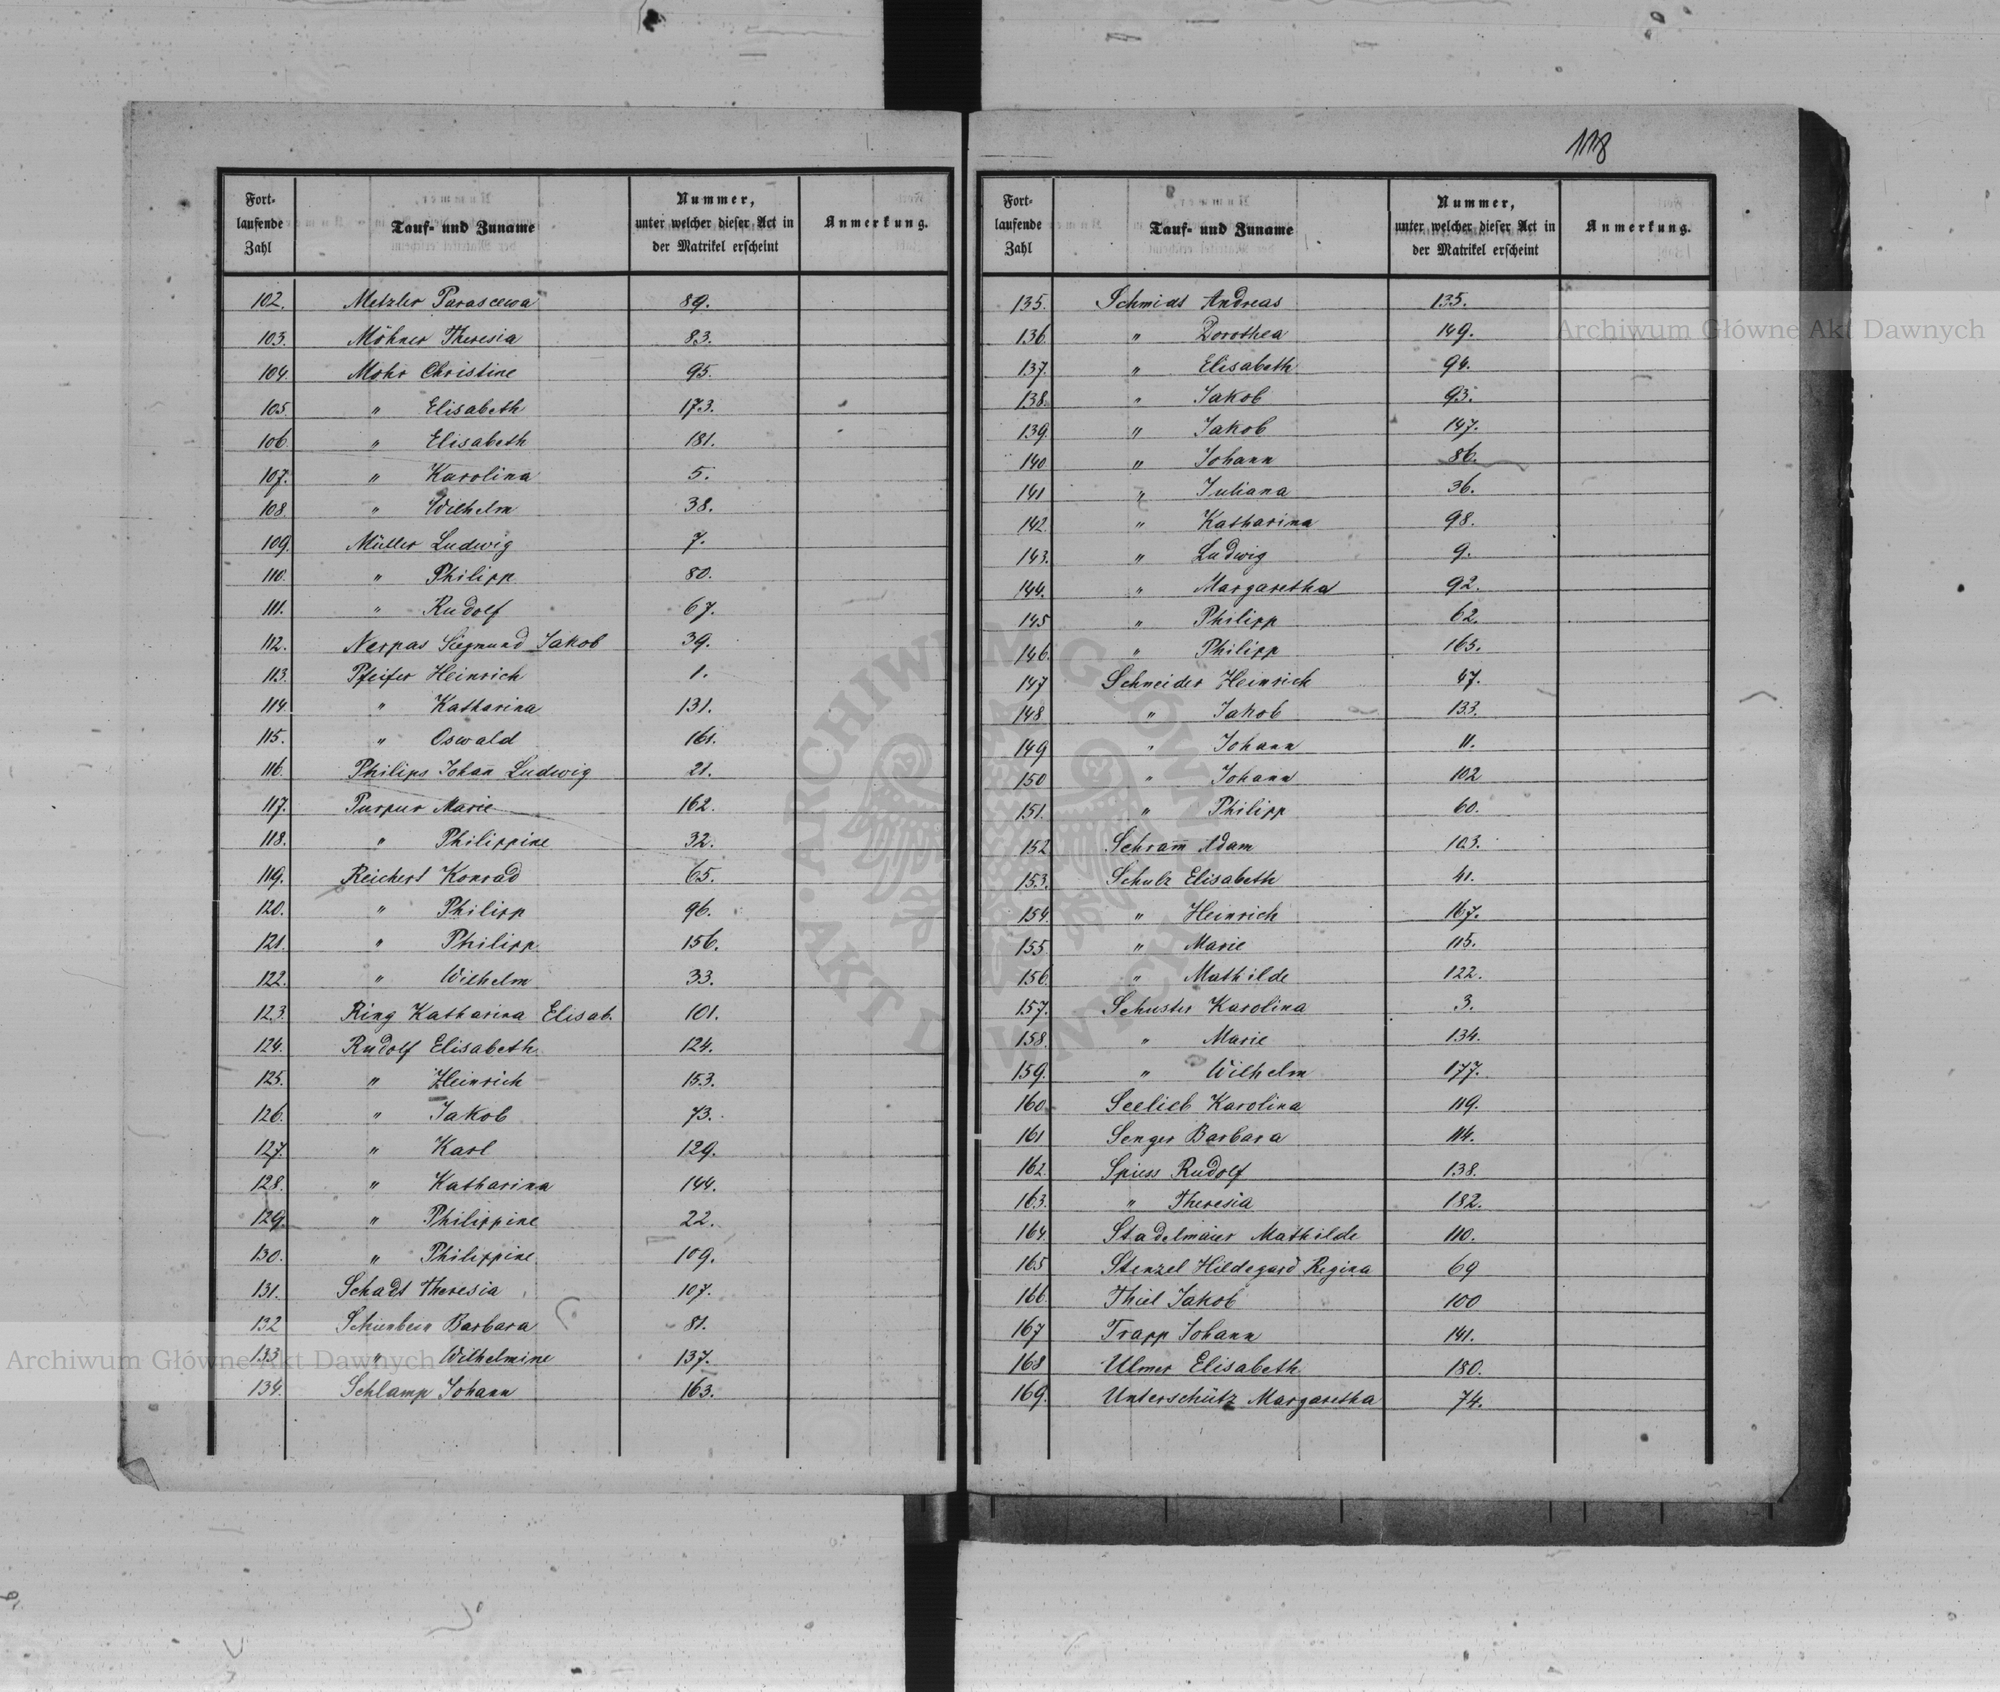 118
Fort-
laufende
Zahl
Tauf- und Zuname
Nummer,
unter welcher dieser Act in
der Matrikel erscheint
Anmerkung.
102. Metzler Parascewa 89.
103. Möhner Theresia 83.
104. Mohr Christine 95.
105. " Elisabeth 173.
106. " Elisabeth 181.
107. " Karolina 5.
108. " Wilhelm 38.
109. Müller Ludwig 7.
110. " Philipp 80.
111. " Rudolf 67.
112. Nerpas Siegmund Jakob 39.
113. Pfeifer Heinrich 1.
114. " Katharina 131.
115. " Oswald 161.
116. Philips Johan̅ Ludwig 21.
117. Purpur Marie 162.
118. " Philippine 32.
119. Reichert Konrad 65.
120. " Philipp 96.
121. " Philipp 156.
122. " Wilhelm 33.
123. Ring Katharina Elisab. 101.
124. Rudolf Elisabeth 124.
125. " Heinrich 153.
126. " Jakob 73.
127. " Karl 129.
128. " Katharina 144.
129. " Philippine 22.
130. " Philippine 109.
131. Schadt Theresia 107.
132 Schienbein Barbara 81.
133 " Wilhelmine 137.
134. Schlamp Johann 163.
Fort-
laufende
Zahl
Tauf- und Zuname
Nummer,
unter welcher dieser Act in
der Matrikel erscheint
Anmerkung.
135. Schmidt Andreas 135.
136 " Dorothea 149.
137. " Elisabeth 94.
138. " Jakob 93.
139. " Jakob 147.
140 " Johann 86.
141 " Juliana 36.
142. " Katharina 98.
143. " Ludwig 9.
144. " Margaretha 92.
145 " Philipp 62.
146. " Philipp 165.
147 Schneider Heinrich 47.
148 " Jakob 133.
149 " Johann 11.
150 " Johann 102
151. " Philipp 60.
152 Schram̅ Adam 103.
153. Schulz Elisabeth 41.
154. " Heinrich 167.
155 " Marie 115.
156. " Mathilde 122.
157. Schuster Karolina 3.
158. " Marie 134.
159. " Wilhelm 177.
160. Seelieb Karolina 119.
161 Senger Barbara 114.
162. Spiess Rudolf 138.
163. " Theresia 182.
164. Stadelmaier Mathilde 110.
165 Stenzel Hildegard Regina 69
166. Thiel Jakob 100
167 Trapp Johann 141.
168 Ulmer Elisabeth 180.
169. Unterschütz Margaretha 74.
Archiwum Główne Akt Dawnych
Archiwum Główne Akt Dawnych
ARCHIWUM GŁÓWNE AKT DAWNYCH